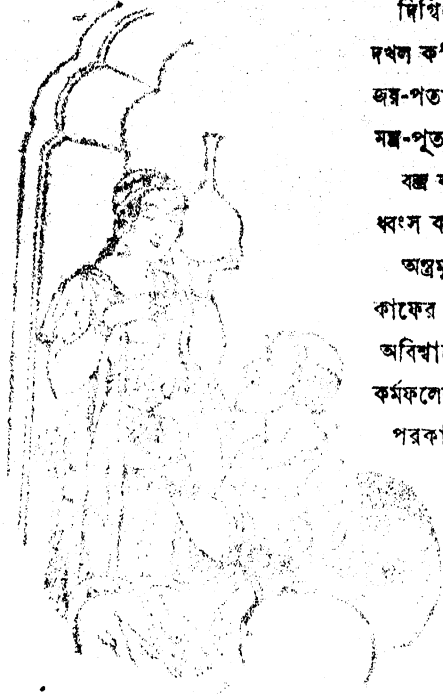 দিগ্বি
দখল ক'
জয়-পতা
মন্ত্র-পূত
বজ্র
ধ্বংস ক
অস্ত্রমু
কাফের
অবিশ্বা
কর্মফলে
পরকা